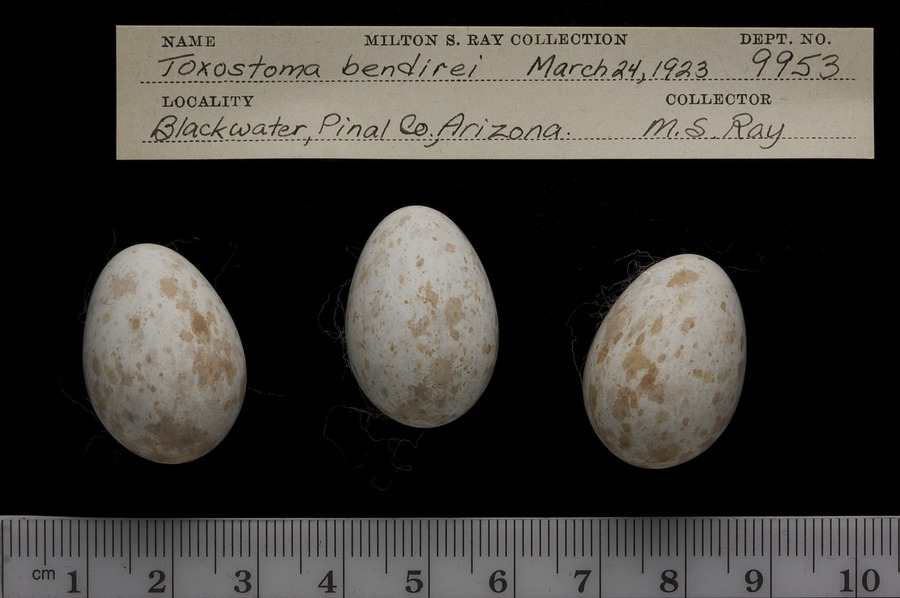 NAME MILTON S. RAY COLLECTION DEPT. NO.
Toxostoma bendirei March 24, 1923 9953
LOCALITY COLLECTOR
Blackwater, Pinal Co., Arizona. M.S. Ray
cm 1 2 3 4 5 6 7 8 9 10